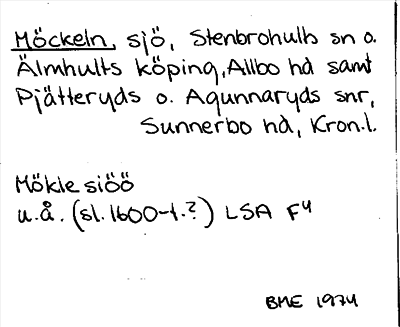 Möckeln, sjö, Stenbrohults sn o.
Älmhults köping, Allbo hd samt
Pjätteryds o. Agunnaryds snr,
Sunnerbo hd, Kron.l.
Mökle siöö
u.å. (sl. 1600-t.?) LSA F4
BME 1974